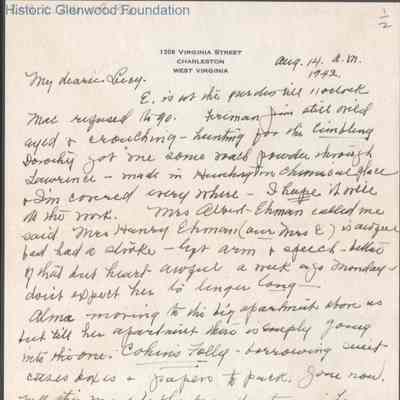 Historic Glenwood Foundation
1/2
1206 VIRGINIA STREET
CHARLESTON
WEST VIRGINIA
Aug. 14. a.m.
1942.
My dearie Lucy.
E. is at the till 11 oclock
Mac refused to go. Fireman Jim still wild
eyed & crouching - hunting for the limbling
Dorothy got me some powder through
Lawrence - made in Huntington Chemical place
& I'm covered every where - I hope it will
do the work. Mrs Albert Ehman called me
said Mrs Henry Ehman (our Mrs E) is awful
bad had a stroke - arm & speech - better
of that but heart awful a week ago Monday -
don't expect her to linger long -
Alma moving to the big apartment above us
but till her apartment there is empty going
into this one. Cohens Folly - borrowing suit
cases boxes & papers to pack. Gone now.